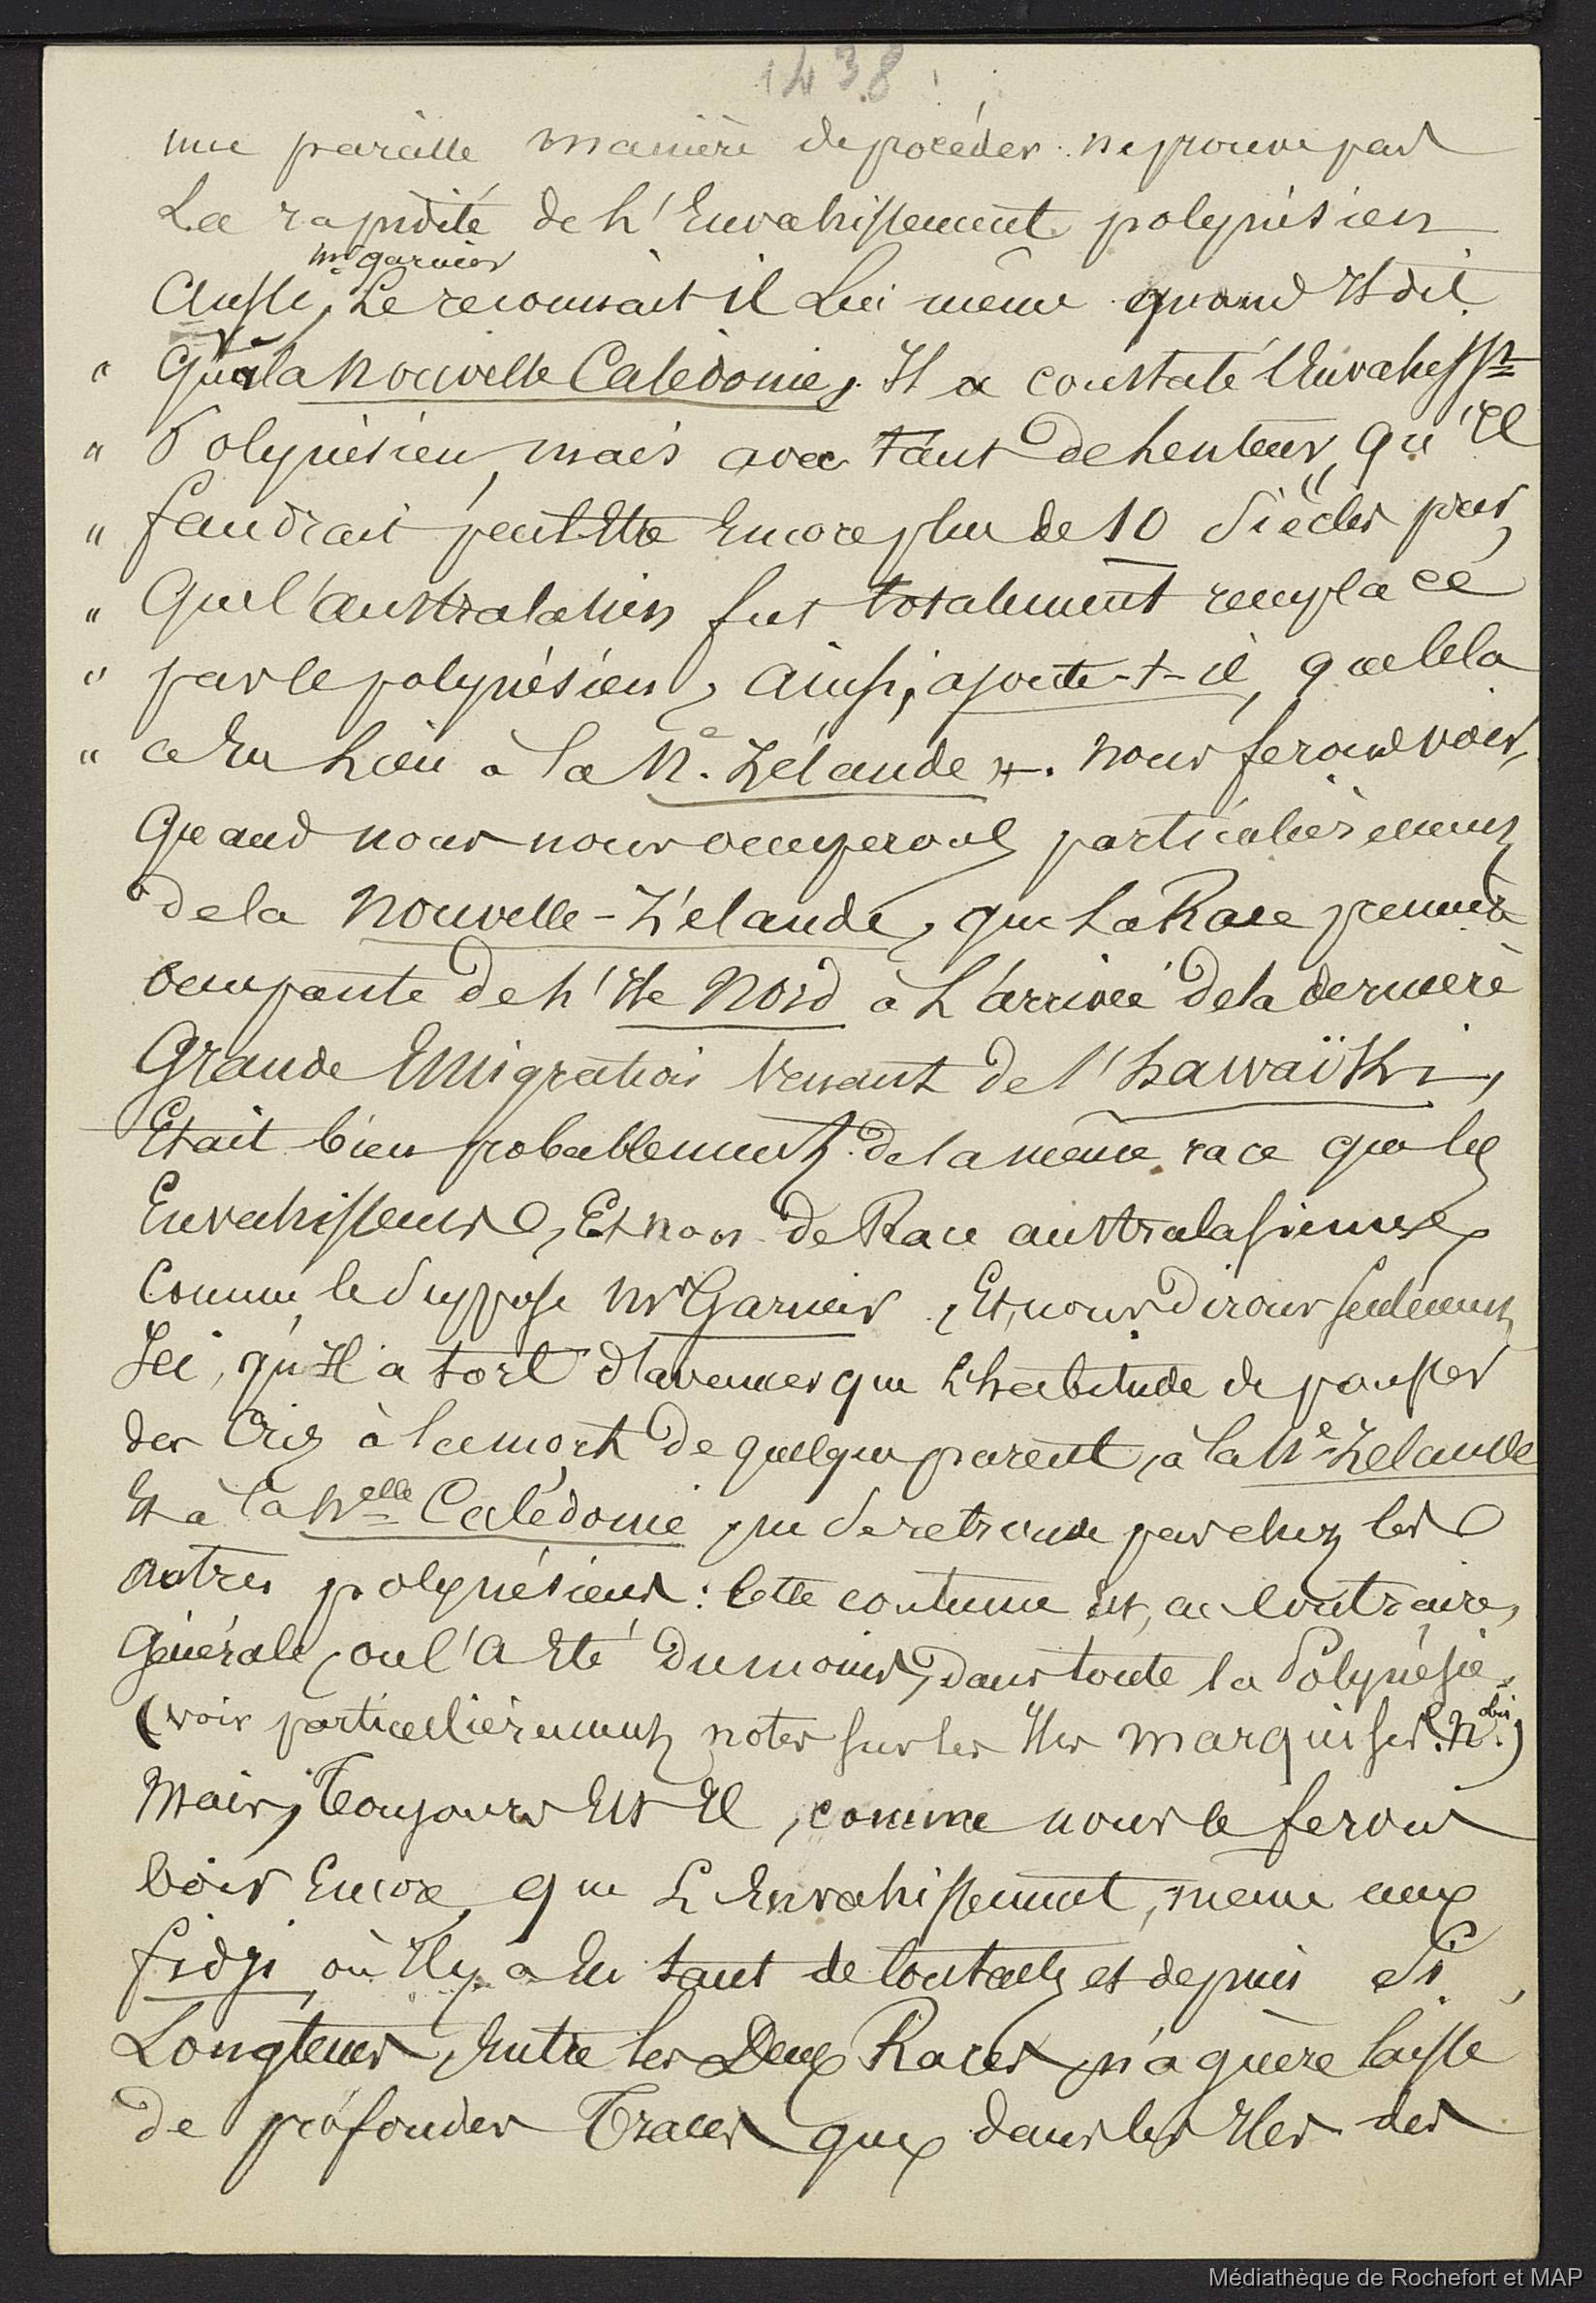 1438
une pareille manière de procéder ne prouve pas
La rapidité de L'Envahissement polynésien
mr garnier
Aussi, Le reconnait il Lui même quand Il dit
" Qu'à la Nouvelle Calédonie, Il a constaté l'Envahisst
" Polynésien, mais avec tant de Lenteur, qu'Il
" faudrait peut Etre Encore plus de 10 Siècles pour
" Que l'australasien fut totalement remplacé
" par le polynésien, ainsi, ajoute-t-il, que cela
" a Eu Lieu à la Ne. Zélande ". nous ferons voir,
Quand nous nous occuperons particulièrement
de la Nouvelle-Zélande, que La Race première
occupante de L'Ile Nord à L'arrivée de la dernière
Grande Emigration Venant de l'hawaïki,
Etait bien probablement de la même race que les
Envahisseurs, Et non de Race australasienne,
Comme le Suppose Mr Garnier. Et, nous dirons seulement
Ici, qu'Il a tort d'avancer que L'habitude de pousser
des Cris à la mort de quelque parent, à la Ne-Zelande
Et à la Nelle Calédonie, ne Se retrouve pas chez les
autres polynésiens : Cette coutume Est, au Contraire,
Générale, ou l'a Eté du moins, dans toute la Polynésie.
(voir particulièrement notes sur les Iles Marquises. N.obis)
Mais, Toujours Est Il, comme nous le ferons
Voir Encore, que L'Envahissement, même aux
fidji, où Il y a Eu tant de Contacts et depuis Si
Longtems, Entre les Deux Races, n'a guère laissé
de profondes Traces que dans les Iles des
Médiathèque de Rochefort et MAP